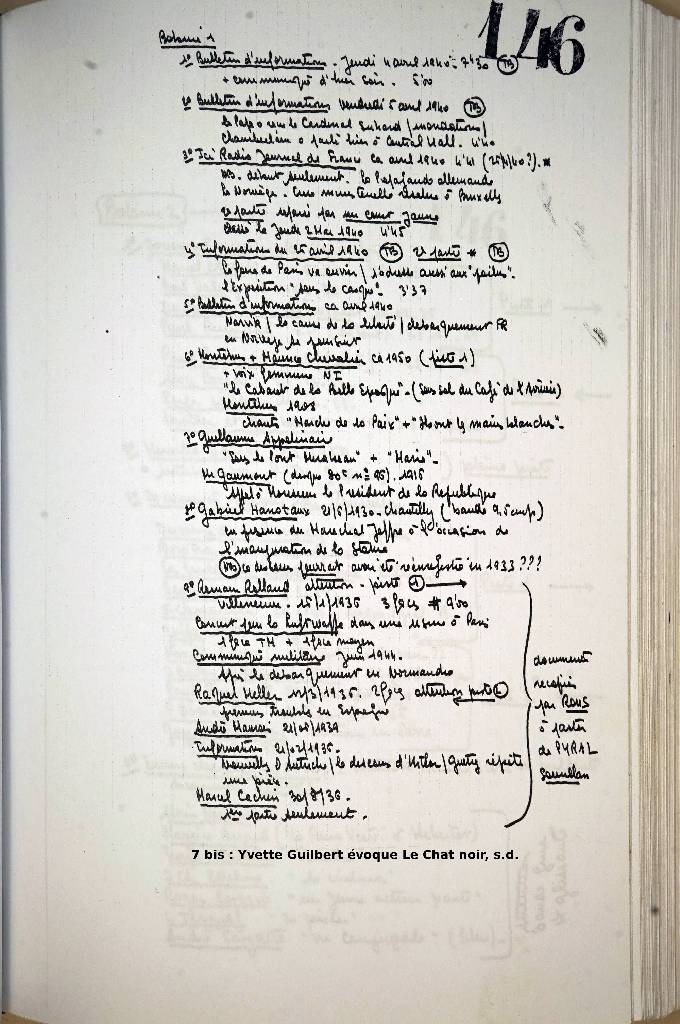 146
1° Bulletin d'informations. Jeudi 4 avril 1940 = 7'30 TB
+ communiqué d'hier soir. 5'00
2° Bulletin d'informations vendredi 5 avril 1940 TB
le Pape reçu le Cardinal Suhard / inondations /
Chamberlain a parlé hier à Central Hall. 4'40
3° Ici Radio Journal de France ca avril 1940 4'41 (25/4/40 ?).
NB. début seulement. la Propagande allemande
la Norvège. à Bruxelles
2e partie séparée par un court jaune
le Jeudi 2 Mai 1940 4'45
4° Informations du 25 avril 1940 TB 2e partie TB
la foire de Paris va ouvrir / s'adresse aussi aux "poilus".
l'Exposition "sous le casque". 3'37
5° Bulletin d'informations ca avril 1940
Narvik / la cause de la liberté / débarquement FR
en Norvège se poursuit
6° Montéhus + Maurice Chevalier ca 1950 (piste 1)
+ voix femme NI
"le Cabaret de la Belle Epoque". (Sous sol du Café de l'Avenir)
Montéhus 1908
chante "Marche de la Paix" + "Ils ont les mains blanches".
7° Guillaume Appolinaire
"Sous le Pont Mirabeau" + "Marie".
Mr Gaumont (disque 80t n° 95). 1915
Appel à Monsieur le Président de la République
8° Gabriel Hanotaux 21/5/1930. Chantilly (bande 9,5 cm/s)
en présence du Maréchal Joffre à l'occasion de
l'inauguration de la Statue
NB ce discours pourrait avoir été réenregistré en 1933 ???
9° Romain Rolland attention. piste 1
Villeneuve. 15/1/1935 3 faces 9'00
Concert pour la Luftwaffe dans une usine à Paris
1 face TM + 1 face moyen
Communiqué militaire Juin 1944.
après le débarquement en Normandie
Raquel Meller 3/1935. 2 faces attention piste 2
premiers troubles en Espagne
André 21/08/1939
Informations 21/02/1935.
Nouvelles d'Autriche / le discours d'Hitler / Guitry répète
une pièce.
Marcel Cachin 30/8/36.
1ère partie seulement.
documents
recopiés
par RONS
à partir
de PYRAL
Souvillan
7 bis : Yvette Guilbert évoque Le Chat noir, s.d.